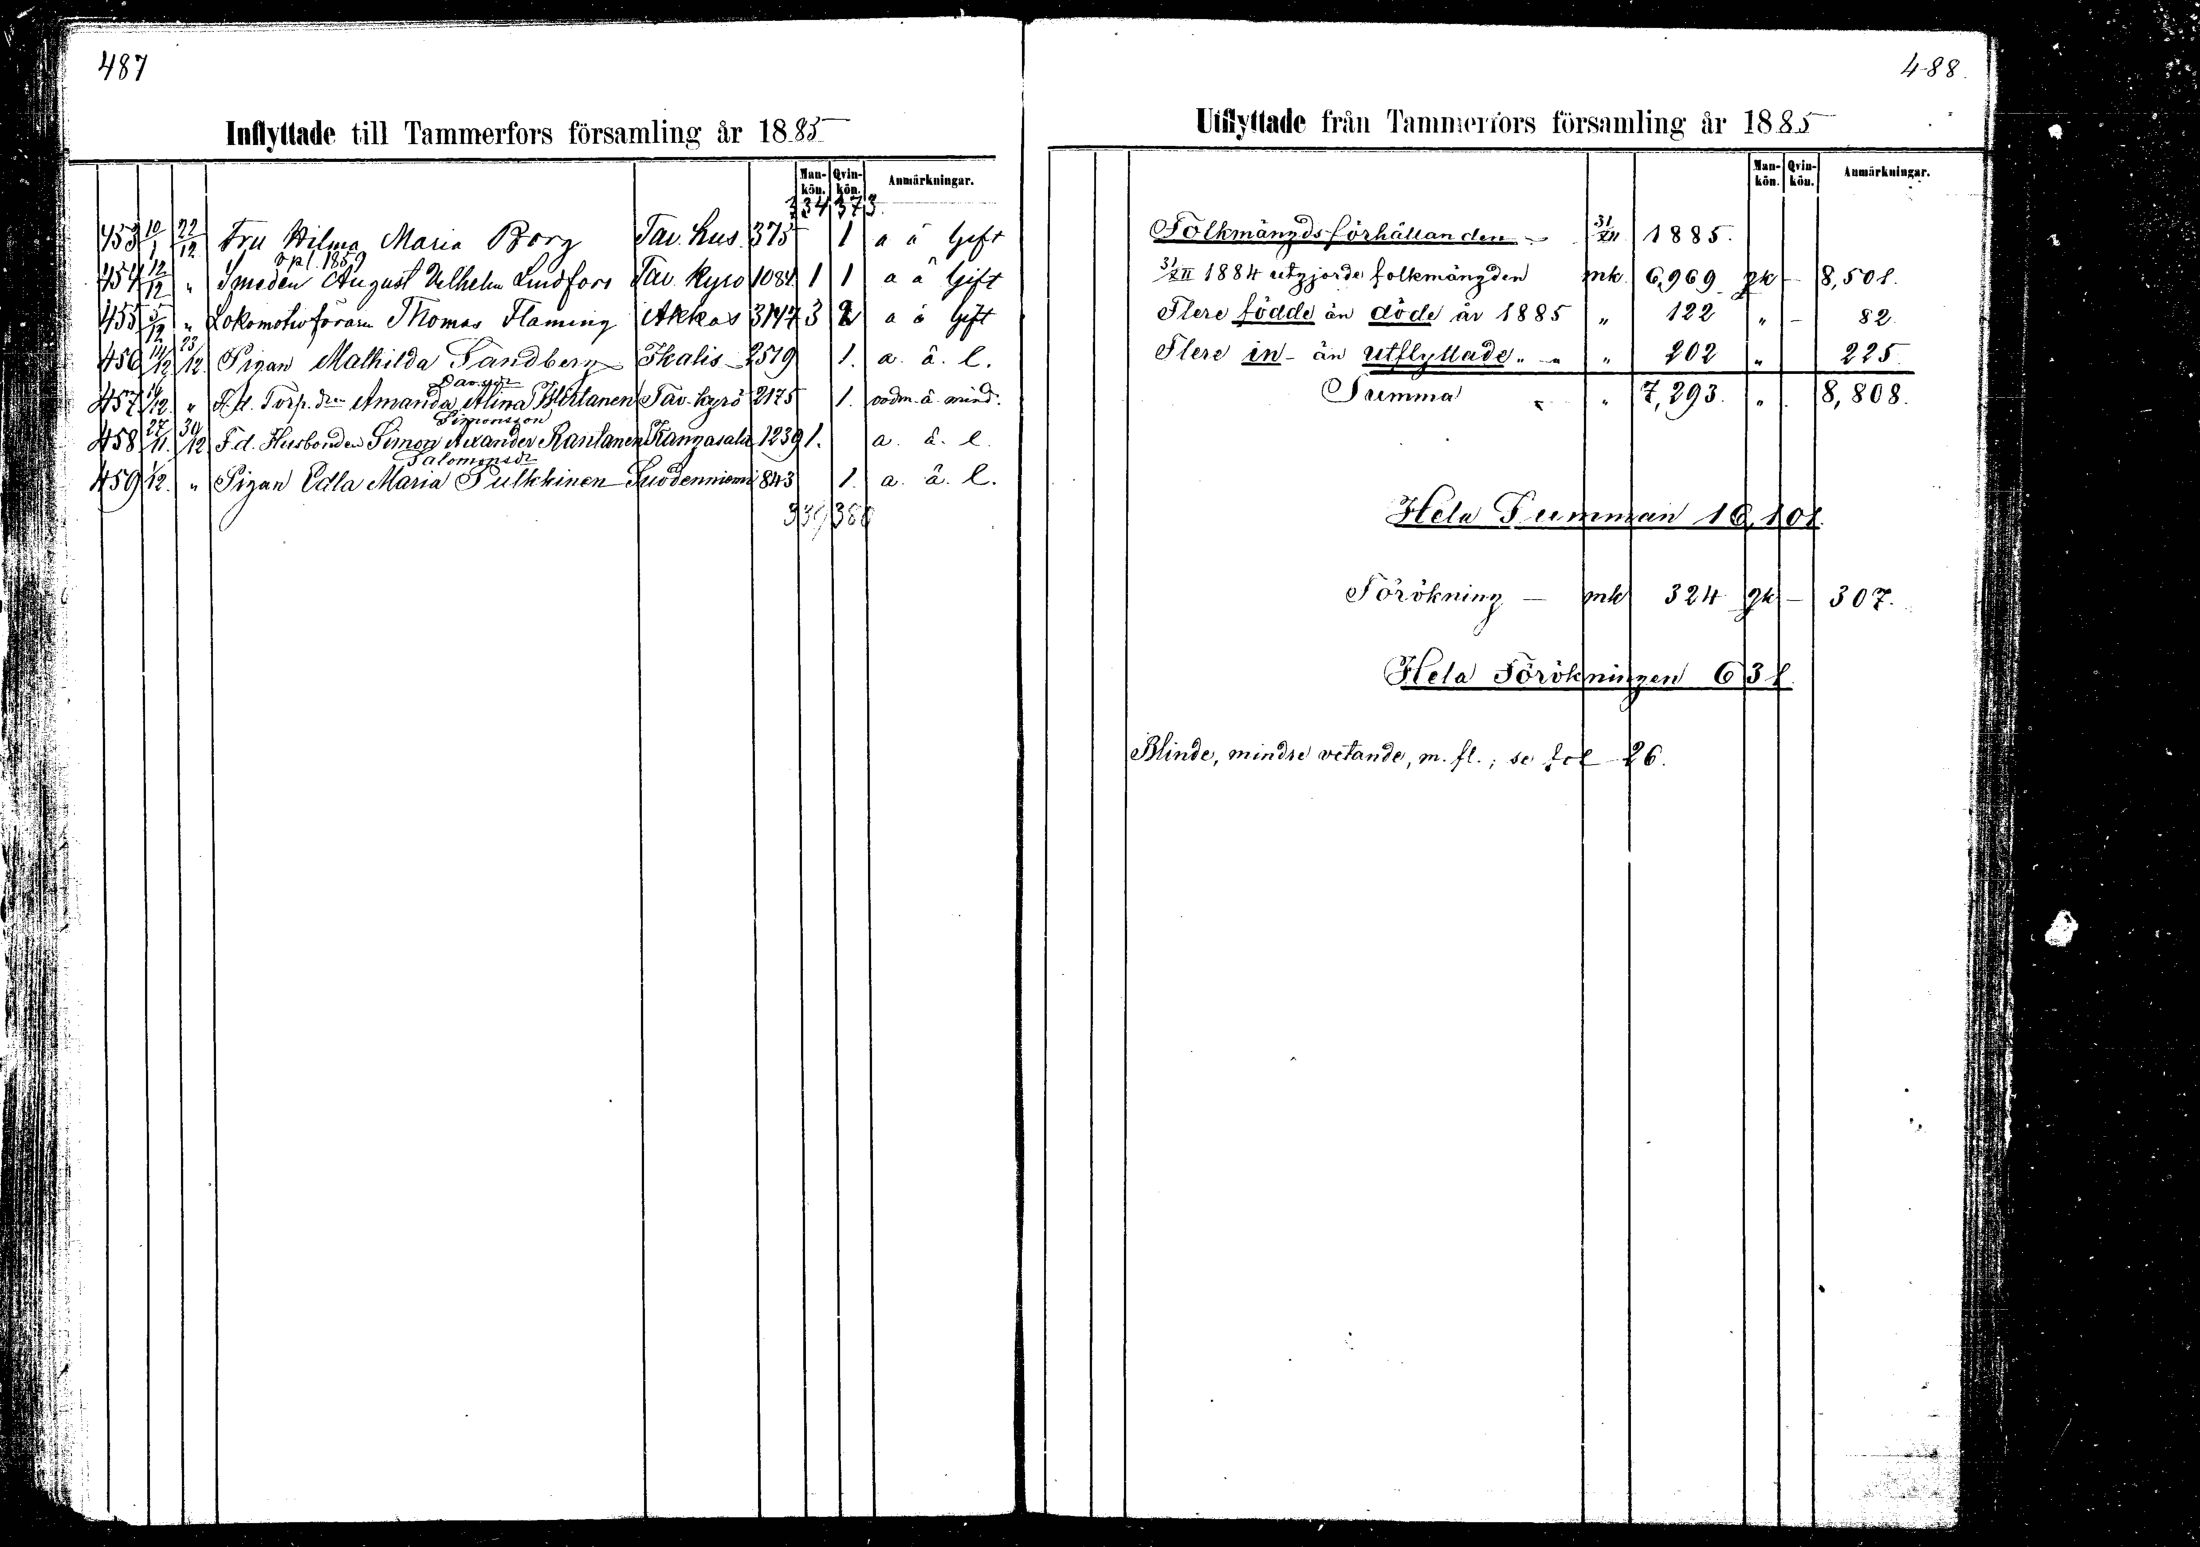 487
Inflyttade till Tammerfors församling år 1885
Man-kön. Qvin-kön. Anmärkningar.
334 373
453 10/1 22/12 Fru Hilma Maria Borg Tav. hus. 375 1 a å Gift
454 12/12 " Smeden August Vilhelm Lindfors Tav. Kyro 1084 1 1 a å Gift
455 5/12 " Lokomotivföraren Thomas Flaming Akkas 3147 3 2 a å Gift
456 14/12 23/12 Pigan Mathilda Sandberg Ikalis 2519 1. a. å. l.
457 14/12. " Amanda Alina Tav. Kyrö 2175 1.
Simonsson
458 27/11. 30/12 F. d. Husbonden Simon Rantanen Kangasala 1239 1. a. å. l.
Salomonsdr
459 1/12. " Pigan Edla Maria Pulkkinen Suodenniemi 843 1. a. å. l.
339 380
488.
Utflyttade från Tammerfors församling år 1885
Man-kön. Qvin-kön. Anmärkningar.
Folkmängdsförhållanden 31/XII 1885.
31/XII 1884 utgjorde folkmängden mk. 6,969 qk – 8,501.
Flere födde än döde år 1885 " 122 " – 82.
Flere in- än utflyttade " " " 202 " 225.
Summa " " 7,293. " 8,808.
Hela Summan 16,101.
Förökning — mk 324 qk – 307.
Hela Förökningen 631.
Blinde, mindre vetande, m. fl.; se fol 26.